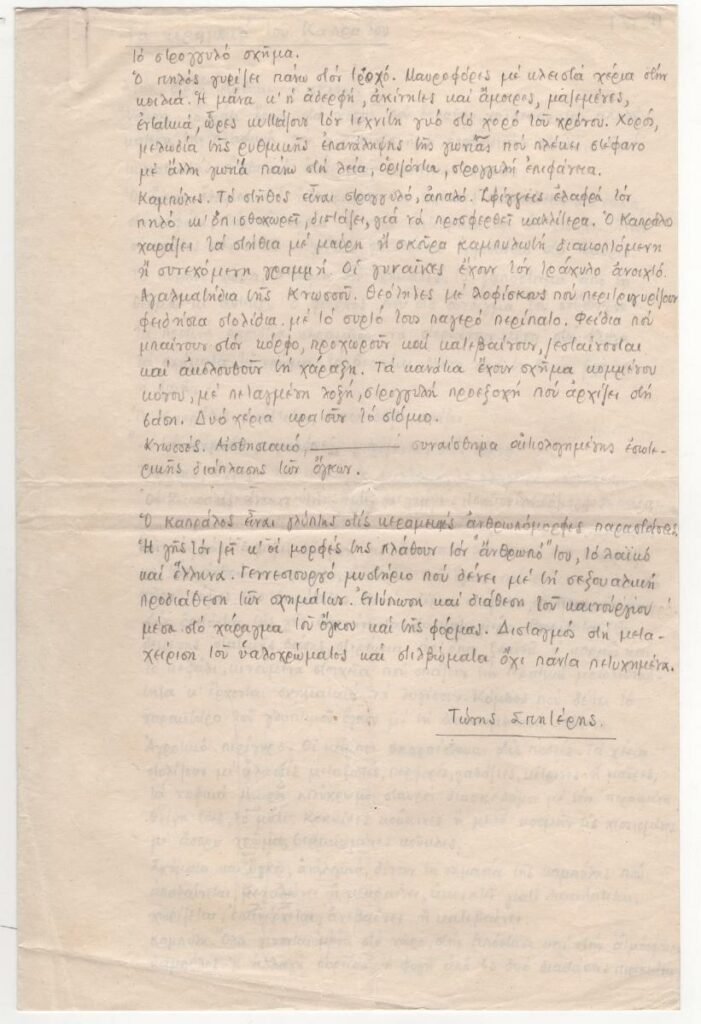 Τὸ στρογγυλὸ σχῆμα.
Ὁ πηλὸς γυρίζει πάνω στὸν τροχό. Μαυροφόρες μὲ κλειστὰ χέρια στὴν
κοιλιά. Ἡ μάνα κ' ἡ ἀδερφή, ἀκίνητες καὶ ἄμοιρες, μαζεμένες,
ἐντατικά, ὧρες κυττάζουν τὸν τεχνίτη γυιὸ στὸ χορὸ τοῦ χρόνου. Χορός,
μελωδία τῆς ρυθμικῆς ἐπανάληψης τῆς γωνίας ποὺ πλέκει στέφανο
μὲ ἄλλη γωνιὰ πάνω στὴ λεία, ὁριζόντια, στρογγυλὴ ἐπιφάνεια.
Καμπύλες. Τὸ στῆθος εἶναι στρογγυλό, ἁπαλό. Σφίγγεις ἐλαφρὰ τὸν
πηλὸ κι' ὀπισθοχωρεῖ, διστάζει, γιὰ νὰ προσφερθεῖ καλλίτερα. Ὁ Καπράλος
χαράζει τὰ στήθια μὲ μαύρη ἢ σκούρα καμπυλωτὴ διακοπτόμενη
ἢ συνεχόμενη γραμμή. Οἱ γυναῖκες ἔχουν τὸν τράχηλο ἀνοιχτό.
Ἀγαλματίδια τῆς Κνωσσοῦ. Θεότητες μὲ λοφίσκους ποὺ περιτριγυρίζουν
φειδίσια στολίδια μὲ τὸ συρτό τους παγερὸ περίπατο. Φείδια ποὺ
μπαίνουν στὸν κόρφο, προχωροῦν καὶ κατεβαίνουν, ζεσταίνονται
καὶ ἀκολουθοῦν τὴ χάραξη. Τὰ κανάτια ἔχουν σχῆμα κομμένου
κώνου, μὲ πεταγμένη λοξή, στρογγυλὴ προεξοχὴ ποὺ ἀρχίζει στὴ
βάση. Δυὸ χέρια κρατοῦν τὸ στόμιο.
Κνωσσός. Αἰσθησιακό, συναίσθημα αἰτιολογημένης ἐσωτε-
ρικῆς διάπλασης τῶν ὄγκων.
Ὁ Καπράλος εἶναι γλύπτης στὶς κεραμεικὲς ἀνθρωπόμορφες παραστάσεις.
Ἡ γῆς τὸν ζεῖ κ' οἱ μορφές της πλάθουν τὸν "ἄνθρωπό" του, τὸ λαϊκὸ
καὶ ἕλληνα. Γεννεσιουργὸ μυστήριο ποὺ δένει μὲ τὴ σεξουαλικὴ
προδιάθεση τῶν σχημάτων. Ἐντύπωση καὶ διάθεση τοῦ καινούργιου
μέσα στὸ χάραγμα τοῦ ὄγκου καὶ τῆς φόρμας. Δισταγμὸς στὴ μετα-
χείριση τοῦ ὑαλοχρώματος καὶ στιλβώματα ὄχι πάντα πετυχημένα.
Τώνης Σπητέρης.